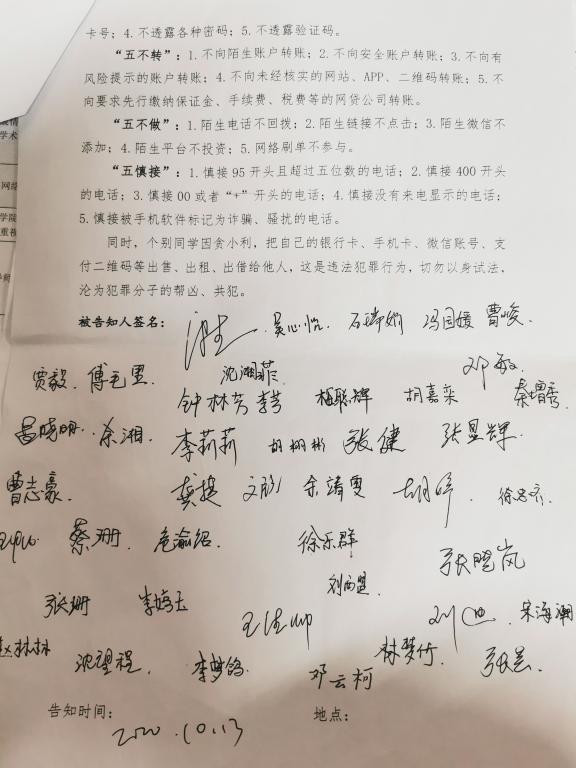 卡号；4.不透露各种密码；5.不透露验证码。
“五不转”：1.不向陌生账户转账；2.不向安全账户转账；3.不向有
风险提示的账户转账；4.不向未经核实的网站、APP、二维码转账；5.不
向要求先行缴纳保证金、手续费、税费等的网贷公司转账。
“五不做”：1.陌生电话不回拨；2.陌生链接不点击；3.陌生微信不
添加；4.陌生平台不投资；5.网络刷单不参与。
“五慎接”：1.慎接95开头且超过五位数的电话；2.慎接400开头
的电话；3.慎接00或者“+”开头的电话；4.慎接没有来电显示的电话；
5.慎接被手机软件标记为诈骗、骚扰的电话。
同时，个别同学因贪小利，把自己的银行卡、手机卡、微信账号、支
付二维码等出售、出租、出借给他人，这是违法犯罪行为，切勿以身试法，
沦为犯罪分子的帮凶、共犯。
被告知人签名： 吴心怡 冯园媛 曹峻
贾毅 傅毛里 沈湘菲 邓敏
钟林芳 梅聪辉 胡嘉栾 秦增秀
余湘 李莉莉 胡栩彬 张健 张显辉
曹志豪 龚捷 文彤 余靖雯
蔡珊 危渝绍 徐乐群 张晓岚
张珊 李婷玉 宋海潮
赵林林 沈望程 李梦鸽 邓云柯 林梦竹
告知时间： 地点：
2020.10.13